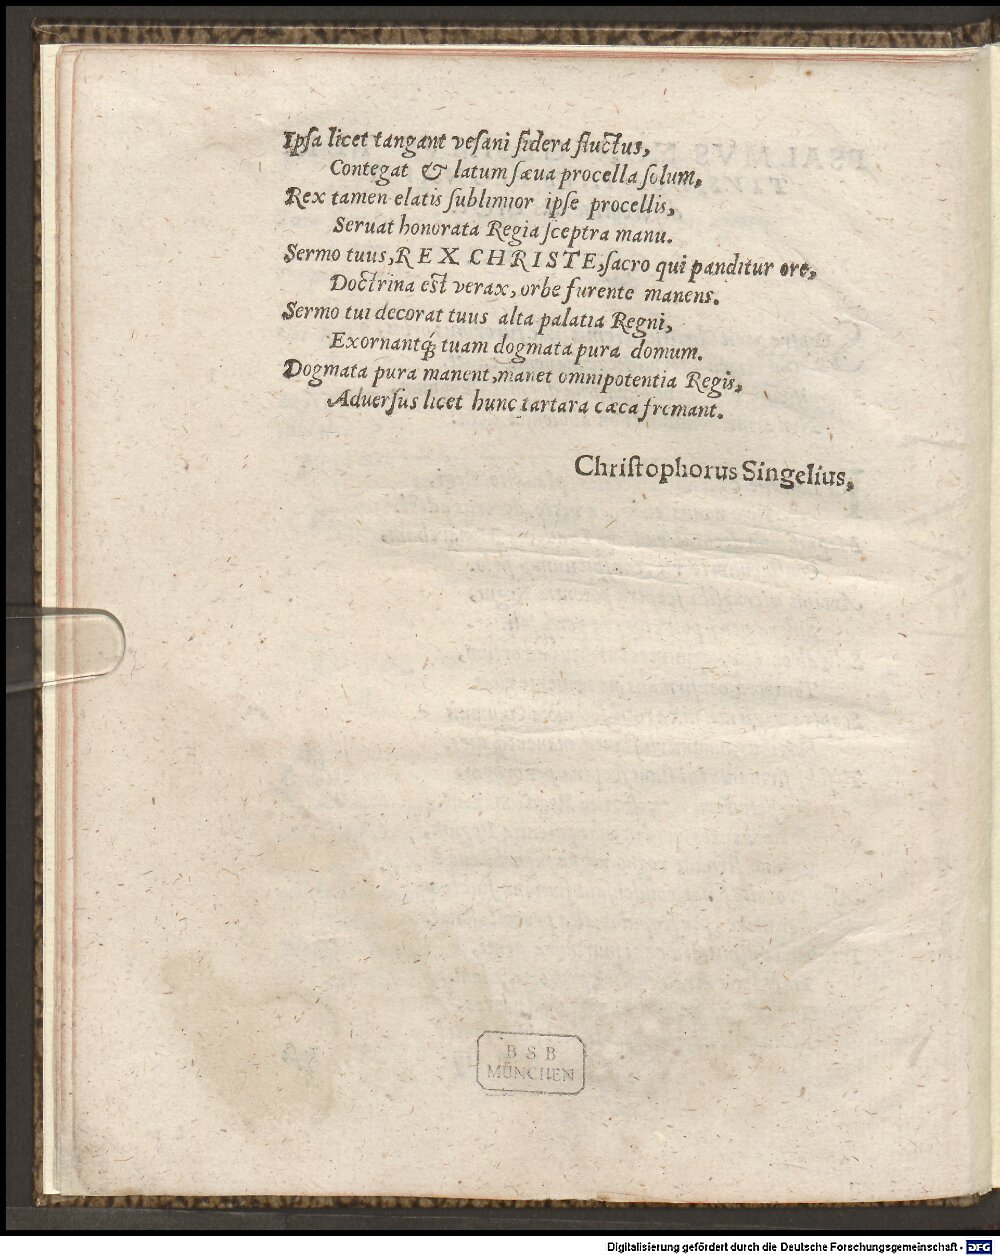 Ipſa licet tangant veſani ſidera fluctus,
Contegat & latum ſæua procella ſolum,
Rex tamen elatis ſublimior ipſe procellis,
Seruat honorata Regia ſceptra manu.
Sermo tuus, REX CHRISTE, ſacro qui panditur ore,
Doctrina eſt verax, orbe furente manens.
Sermo tui decorat tuus alta palatia Regni,
Exornantq́; tuam dogmata pura domum.
Dogmata pura manent, manet omnipotentia Regis,
Aduerſus licet hunc tartara cæca fremant.
Chriſtophorus Singelius,
B S B
MÜNCHEN
Digitalisierung gefördert durch die Deutsche Forschungsgemeinschaft - DFG